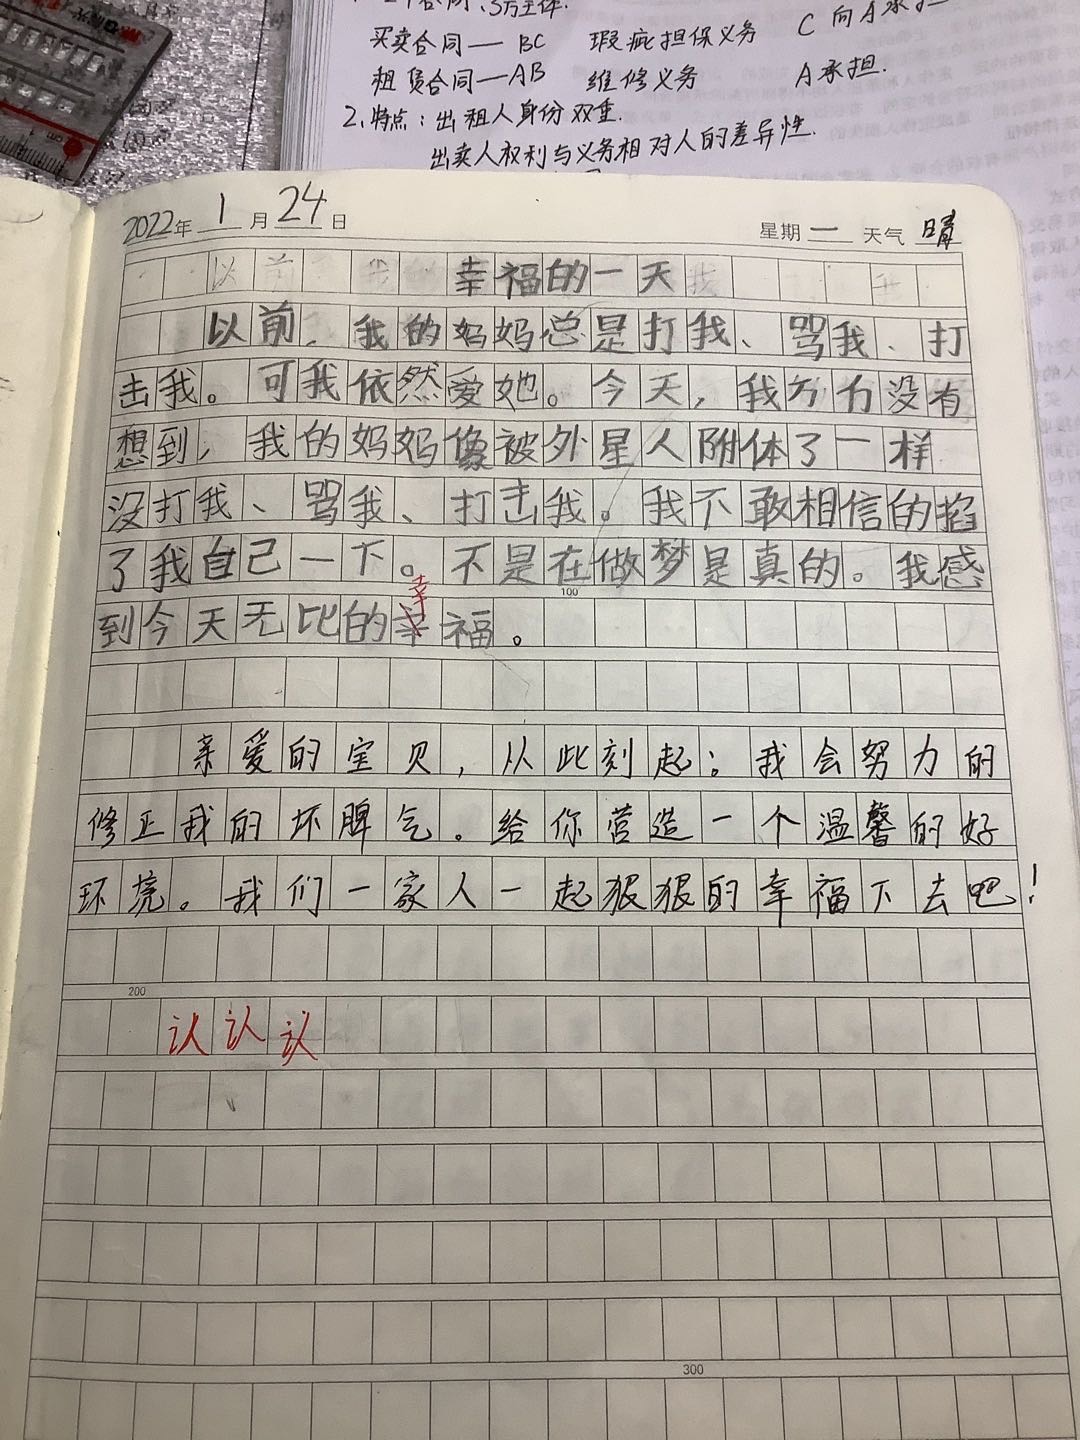 买卖合同——BC 瑕疵担保义务
租赁合同——AB 维修义务 A承担.
2、特点：出租人身份双重.
出卖人权利与义务相对人的差异性.
2022年 1 月 24 日 星期 一 天气 晴
幸福的一天
以前，我的妈妈总是打我、骂我、打
击我。可我依然爱她。今天，我万万没有
想到，我的妈妈像被外星人附体了一样
没打我、骂我、打击我。我不敢相信的掐
了我自己一下。不是在做梦是真的。我感
100
幸
到今天无比的幸福。
亲爱的宝贝，从此刻起：我会努力的
修正我的坏脾气。给你营造一个温馨的好
环境。我们一家人一起狠狠的幸福下去吧！
200
认认认
300